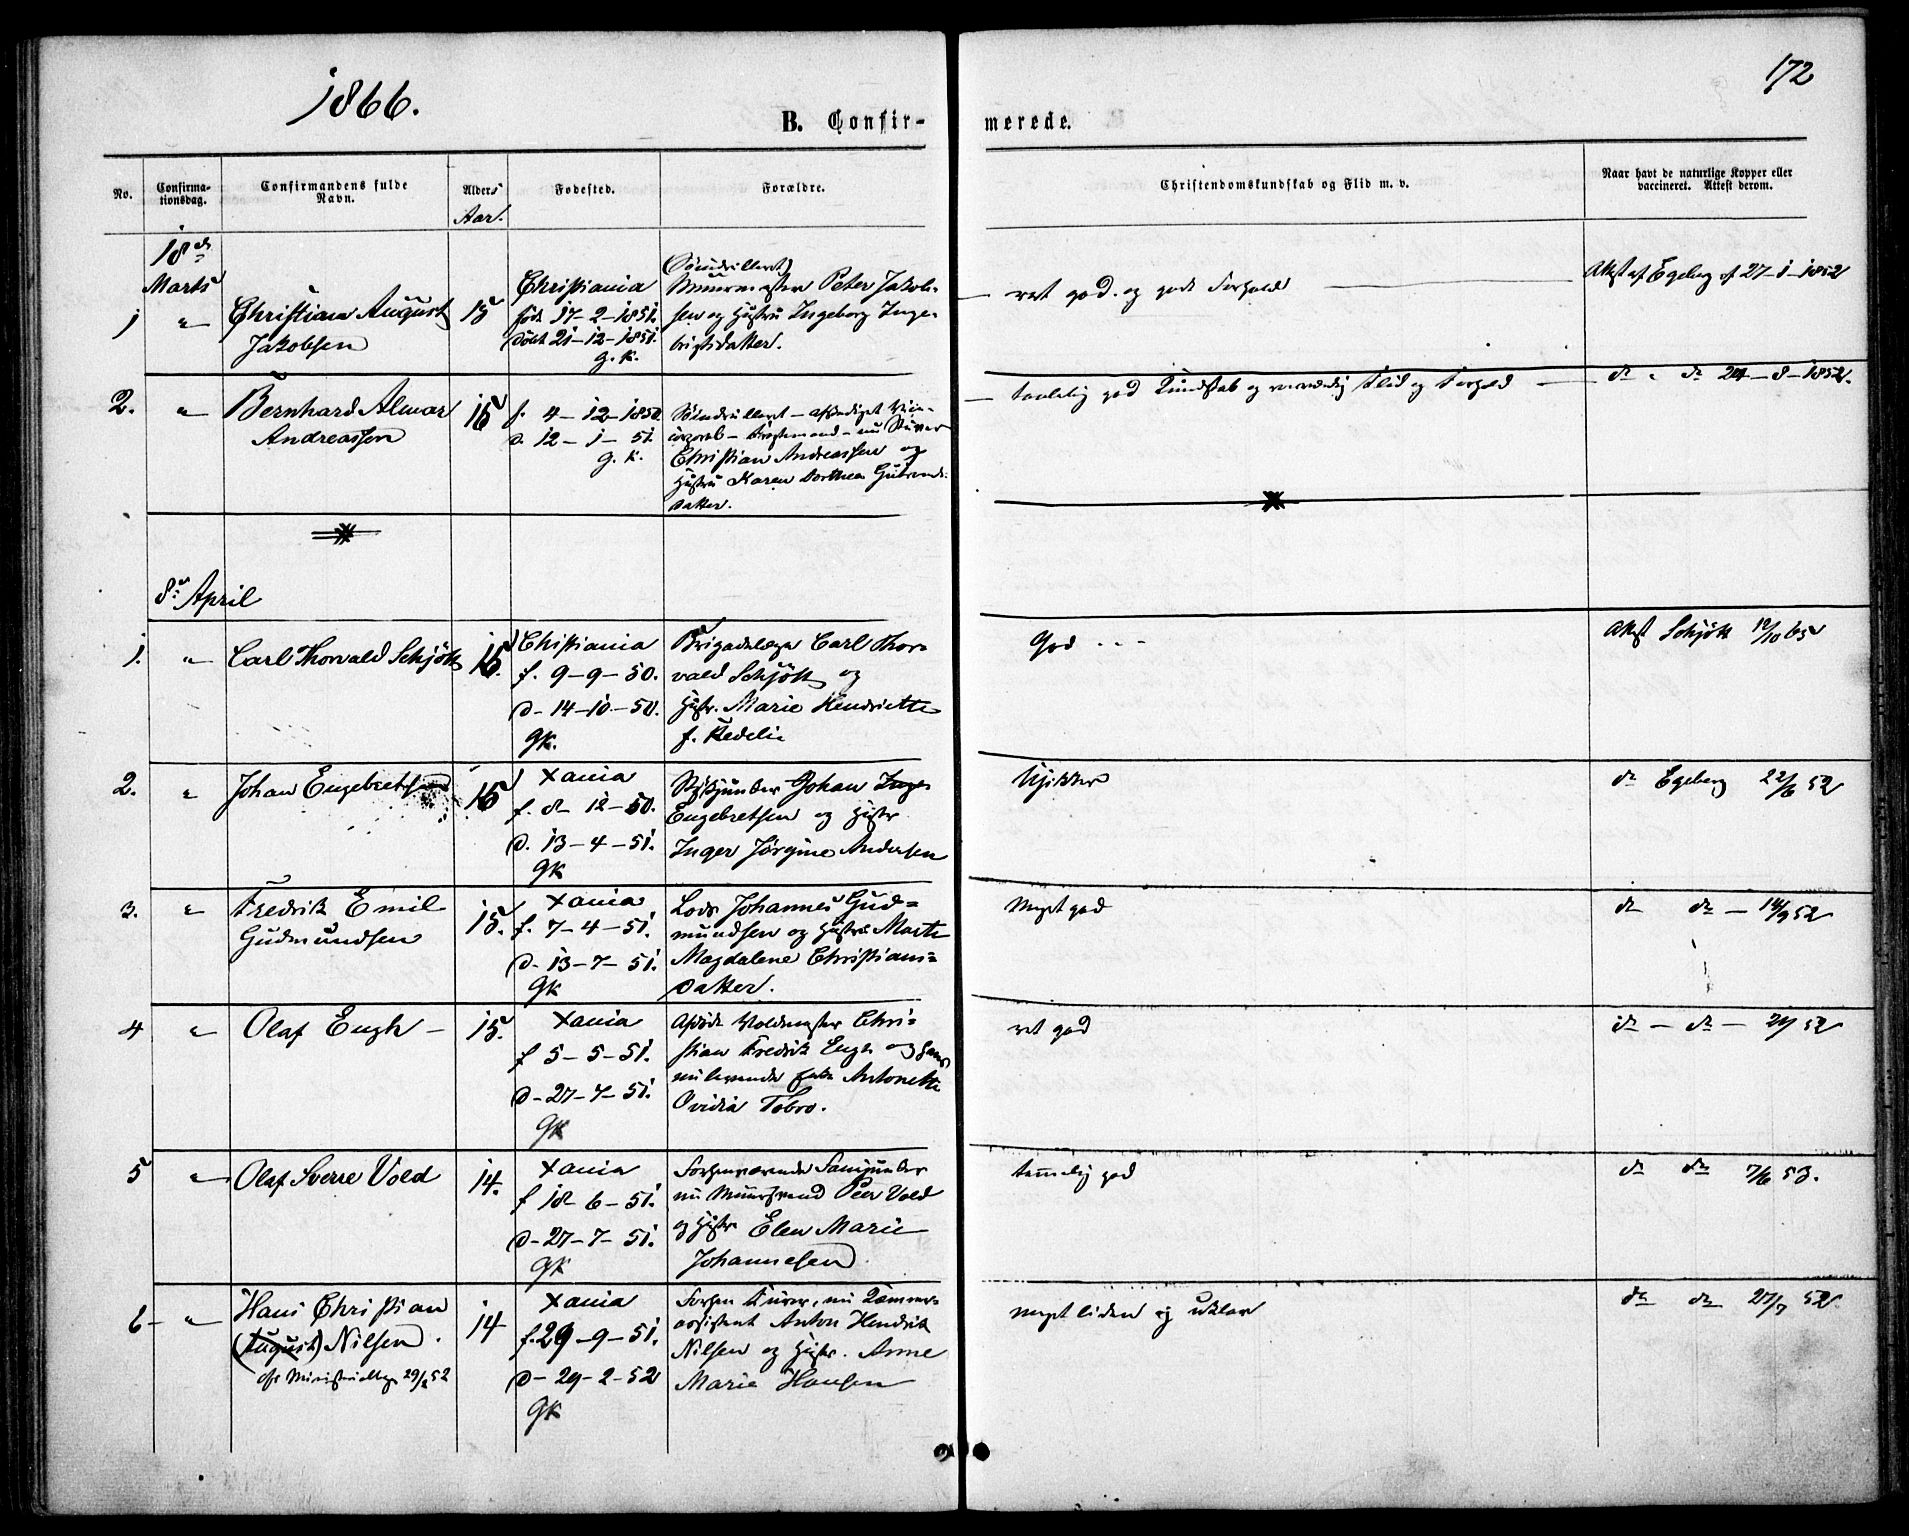 1866.
172
B. Confir-
merede.
No.
Confirma-
tionsdag.
Confirmandens fulde
Navn.
Alders
Aar.
Fødested.
Forældre.
Christendomskundskab og Flid m. v.
Naar havt de naturlige Kopper eller
vaccineret. Attest derom.
18de
Marts
1 " Christian August
Jakobsen
15
Christiania
født 17-2-1851.
døbt 21-12-1851.
g. k.
Muurmester Peter Jakob-
sen og Hustru Ingeborg Inge-
brigtsdatter.
ret god og godt Forhold
Attest af Egeberg af 27-1-1852
2. " Bernhard Almar
Andreassen
15
f. 4-12-1850
d. 12-1-51.
g. k.
Christian Andreassen og
Hustru Karen Dorthea Gulbrands-
datter.
temmelig god Kundskab og Flid og Forhold
do " do 24-8-1852.
8de April
1. " Carl Thorvald Schjøtt
15.
Christiania
f. 9-9-50.
d-14-10-50.
gk.
Brigadelæge Carl Thor-
vald Schjøtt og
Hustr. Marie Hendriette
f.
God
Attest Schjøtt 12/10 65
2. " Johan Engebretsen
15
Xania
f. 8-12-50.
d. 13-4-51.
gk
Johan Inge
Engebretsen og Hustr
Inger Jørgine Andersen
Usikker
do Egeberg 22/6 52
3. " Fredrik Emil
Gudmundsen
15.
Xania
f. 7-4-51.
d-13-7-51.
gk
Lods Johannes Gud-
mundsen og Hustru Marte
Magdalene Christians-
datter.
Meget god
do do - 14/9 52
4 " Olaf Engh -
15.
Xania
f 5-5-51.
d-27-7-51.
gk
Afdøde Voldmester Chri-
stian Fredrik Engh og hans
nulevende Antonette
Ovidia Tobro.
ret god
do - do - 52
5 " Olaf Sverre Vold
14.
Xania
f 18-6-51.
d-27-7-51.
gk
Forhenværende
nu Muursvend Peer Vold
og Hustr Elen Marie
Johannesen.
temmelig god
do do 7/6 53.
6- " Hans Christian
(August) Nilsen.
29/2 52
14
Xania
f. 29-9-51.
d-29-2-52
gk
Anton Hendrik
Nilsen og Hustr. Anne
Marie Hansen
meget liden og uklar
do do 27/7 52.